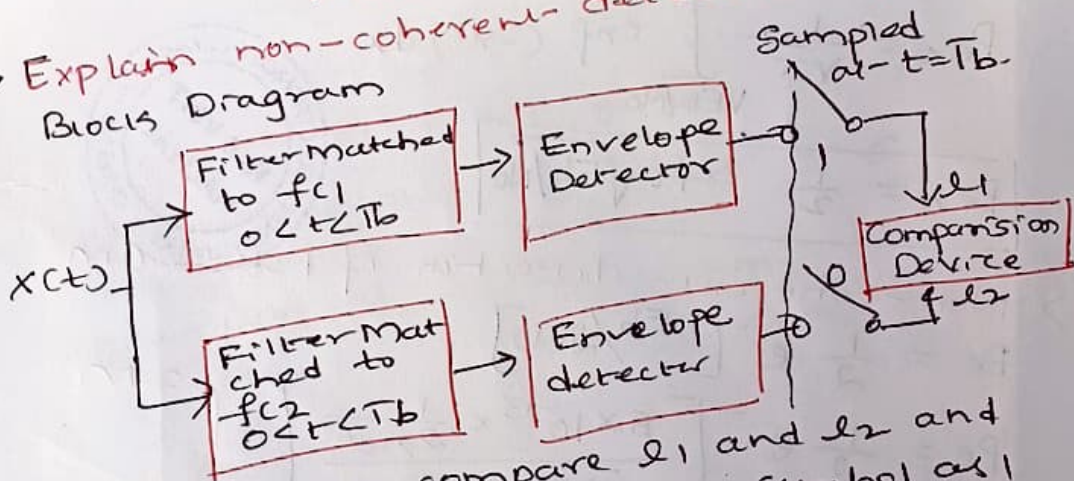 Explain non-coherent
Block Diagram
Sampled
at t=Tb.
Filter Matched
to fc1
0<t<Tb
Envelope
Detector
1
l1
Comparision
Device
x(t)
0
l2
Filter Mat
ched to
fc2
0<t<Tb
Envelope
detector
compare l1 and l2 and
as 1